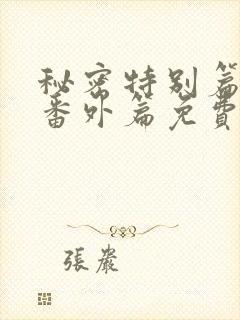 秘密特别篇
番外篇免費
張嚴